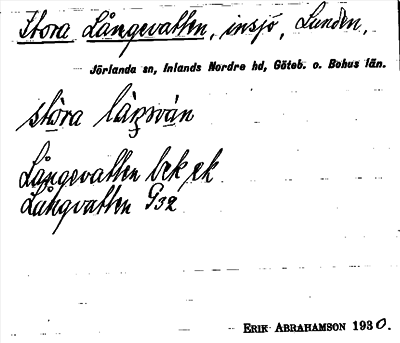 Stora Långevatten, insjö, Lunden,
Jörlanda sn, Inlands Nordre hd, Göteb. o. Bohus län.
stòra låŋsván
Långevatten bek ek
Långvatten G32
ERIK ABRAHAMSON 1930.